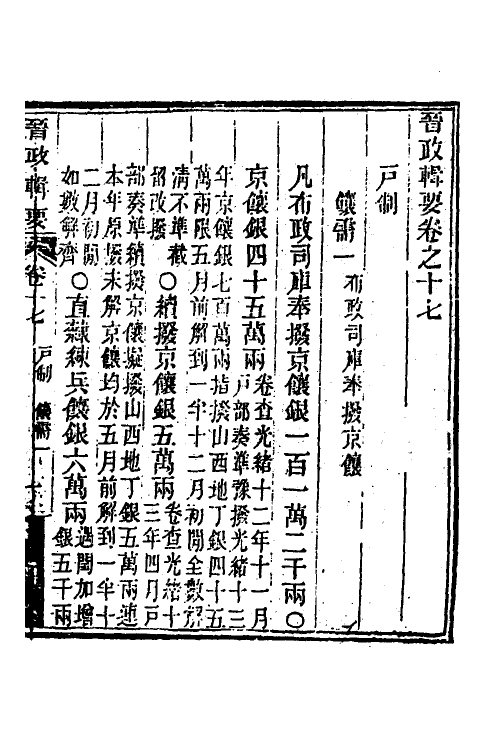 晉政輯要卷之十七
戶制
餉需一 布政司庫奉撥京餉
凡布政司庫奉撥京餉銀一百一萬二千兩〇
京餉銀四十五萬兩 卷查光緒十二年十一月
戶部奏準豫撥光緒十三
年京餉銀七百萬兩指撥山西地丁銀四十五
萬兩限五月前解到一半十二月初間全數解
清不準截
留改撥 〇續撥京餉銀五萬兩 卷查光緒十
三年四月戶
部奏準續撥京餉擬撥山西地丁銀五萬兩連
本年原撥未解京餉均於五月前解到一半十
二月初間
如數解齊 〇直隸練兵餉銀六萬兩 遇閏加增
銀五千兩
晉政輯要 卷十七 戶制 餉需一